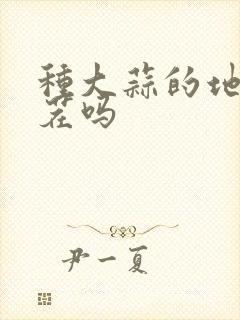 種大蒜的地
花吗
尹一夏